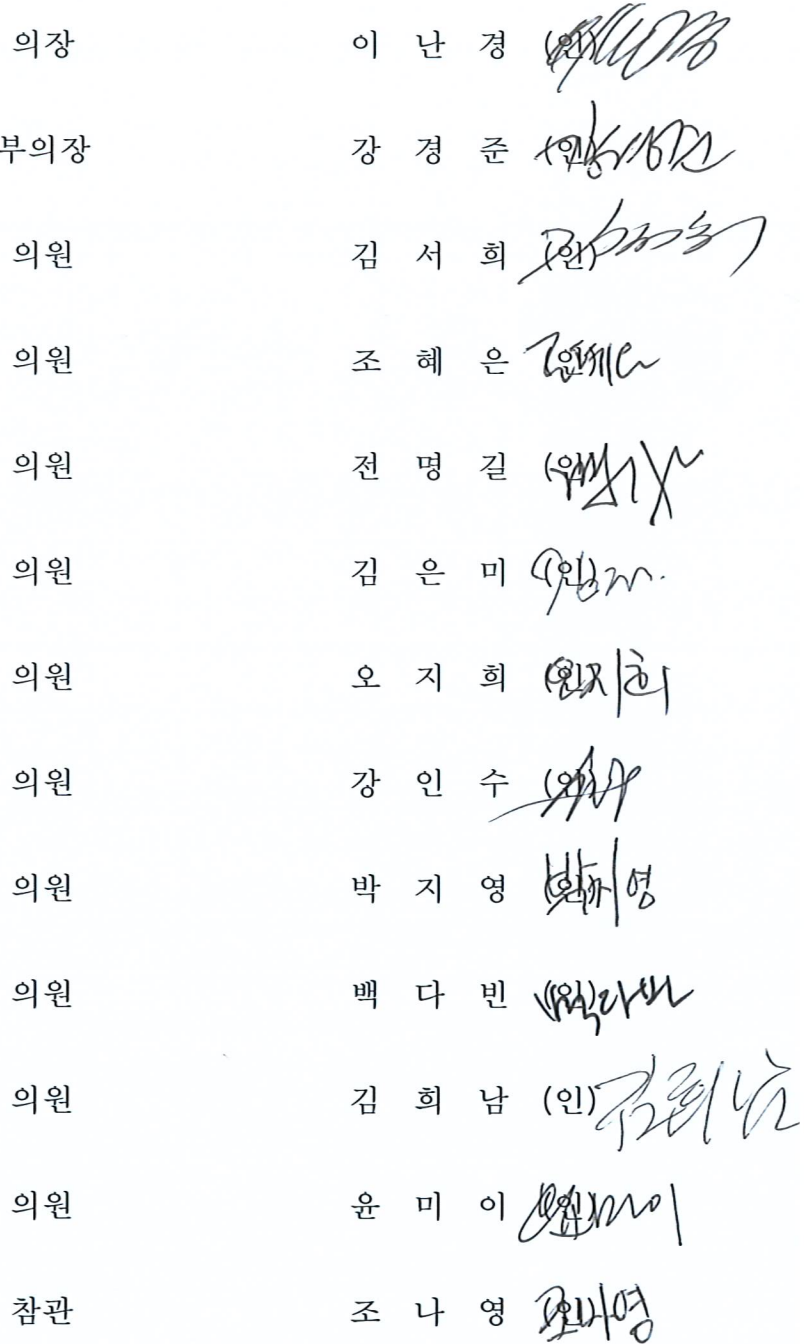 의장 이 난 경 (인)
부의장 강 경 준 (인)
의원 김 서 희 (인)
의원 조 혜 은 (인)
의원 전 명 길 (인)
의원 김 은 미 (인)
의원 오 지 희 (인) 오지희
의원 강 인 수 (인)
의원 박 지 영 (인) 박지영
의원 백 다 빈 (인) 백다빈
의원 김 희 남 (인) 김희남
의원 윤 미 이 (인) 윤미이
참관 조 나 영 (인) 조나영